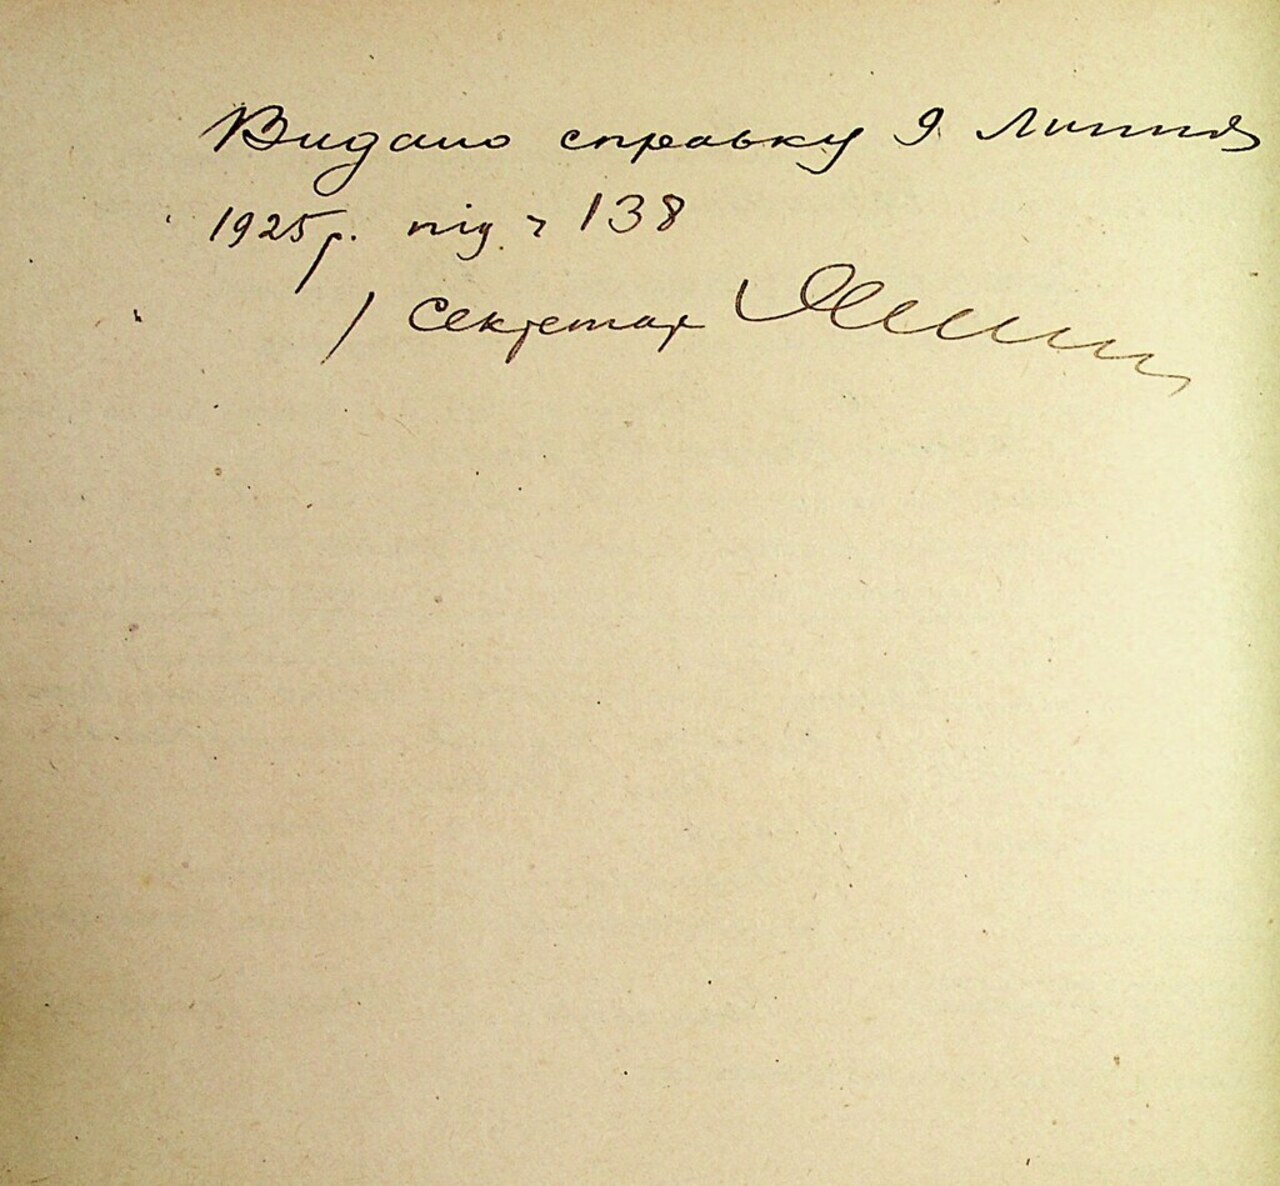 Видано справку 9 Липня
1925 р. під ч 138
/ Секретар